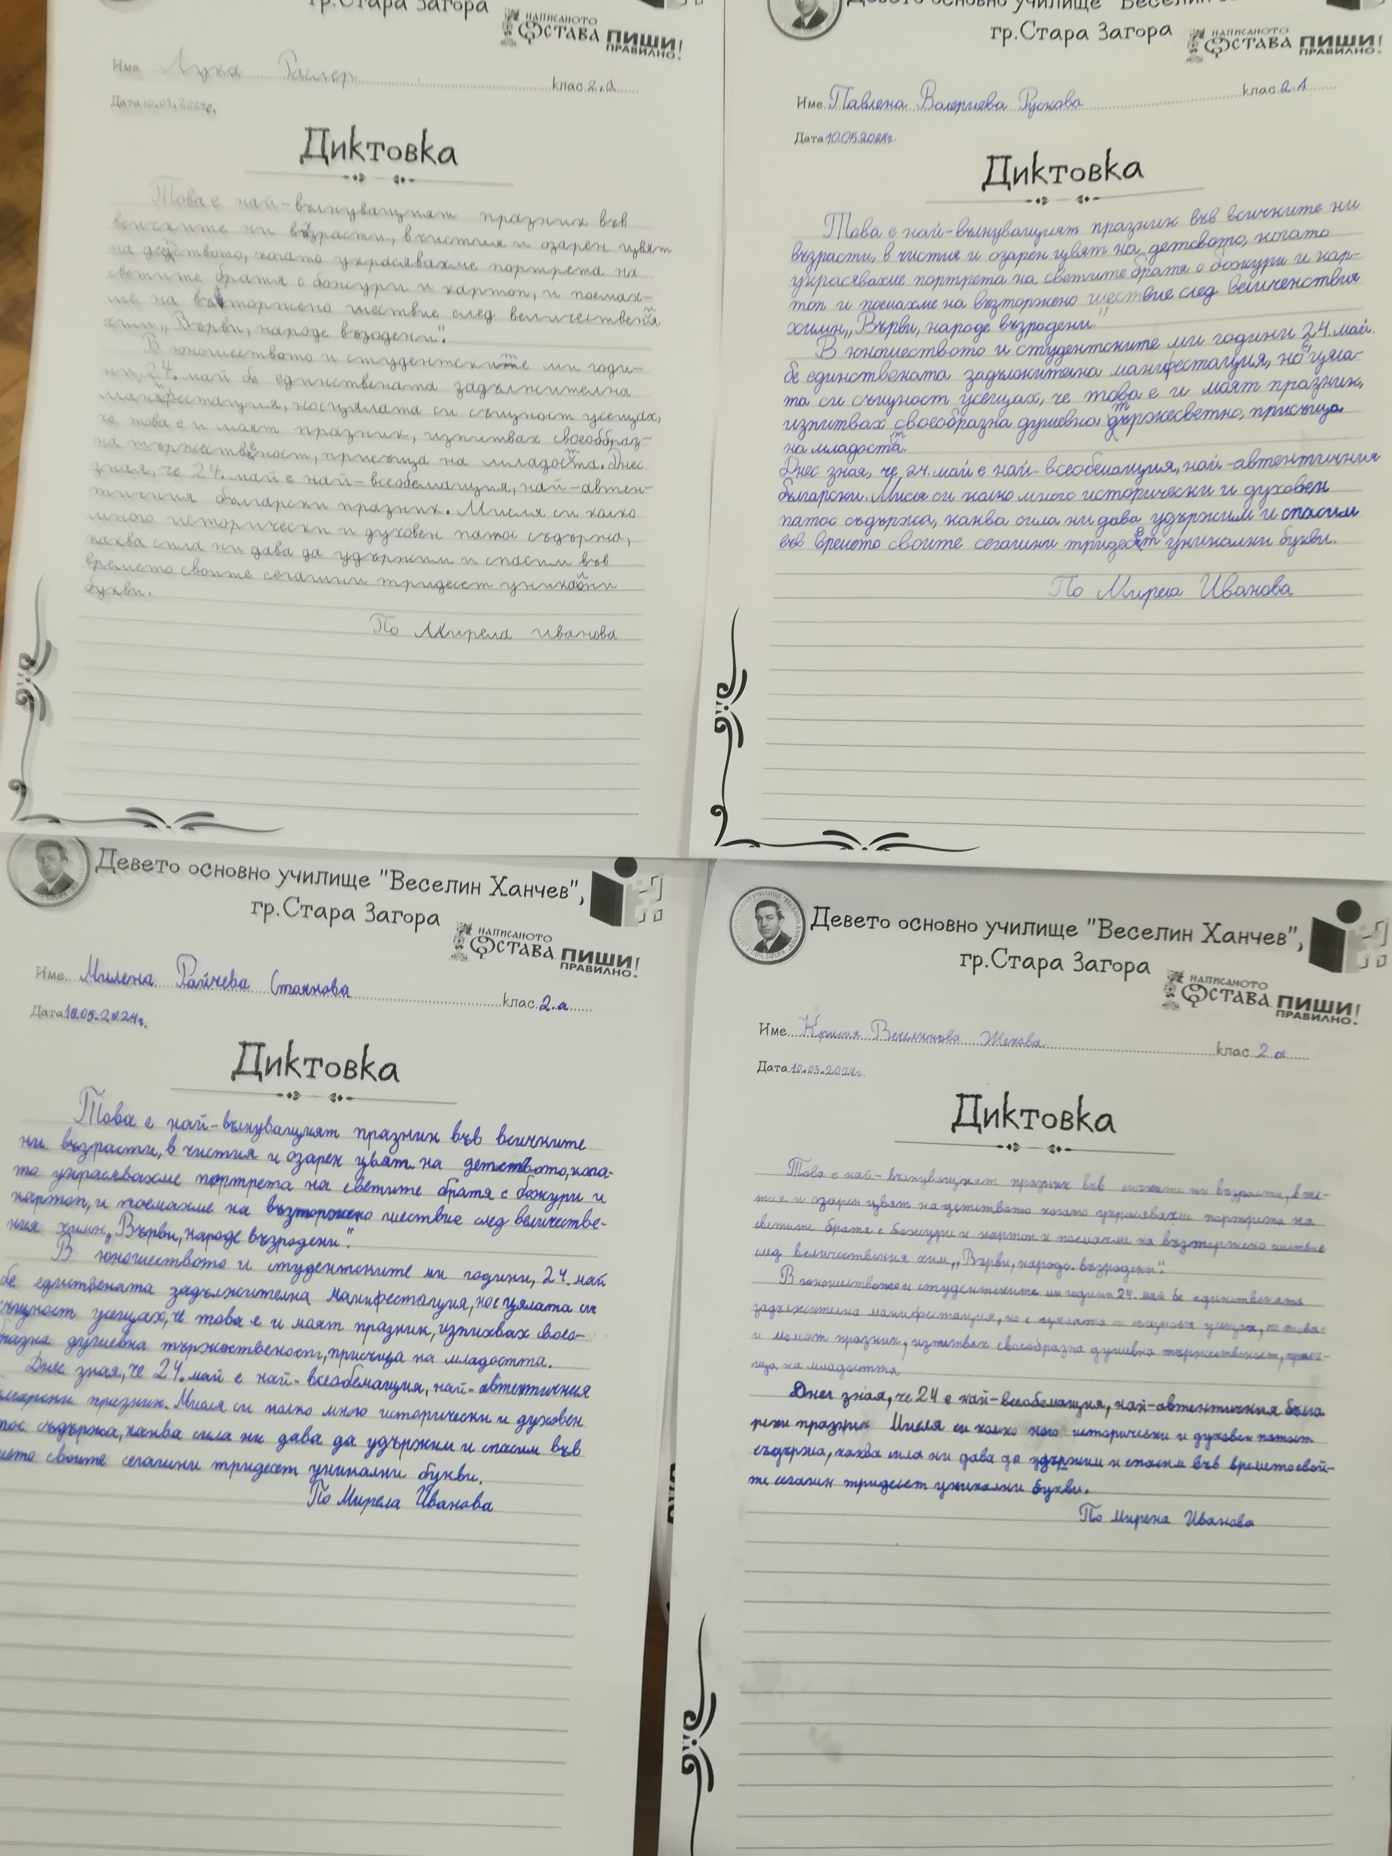 гр.Стара Загора
НАПИСАНОТО
ОСТАВА ПИШИ!
ПРАВИЛНО!
Име Лука клас 2.а
Дата
Диктовка
Това е най-вълнуващият празник във
всичките ни възрасти, в чистия и озарен цвят
на детството, когато украсявахме портрета на
светите братя с божури и картоп, и поемах-
ме на възторжено шествие след величествения
химн „Върви, народе възродени".
В юношеството и студентските ми годи-
ни 24. май бе единствената задължителна
манифестация, но с цялата си същност усещах,
че това е и моят празник, изпитвах своеобраз-
на тържественост, присъща на младостта. Днес
зная, че 24. май е най-всеобемащия, най-автен-
тичния български празник. Мисля си колко
много исторически и духовен патос съдържа,
каква сила ни дава да удържим и спасим във
времето своите сегашни тридесет уникални
букви.
По Мирела Иванова
Девето основно училище
гр.Стара Загора
НАПИСАНОТО
ОСТАВА ПИШИ!
ПРАВИЛНО!
Име Павлена Валериева Рускова клас 2 А
Дата 10.05.2024г.
Диктовка
Това е най-вълнуващият празник във всичките ни
възрасти, в чистия и озарен цвят на детството, когато
украсявахме портрета на светите братя с божури и кар-
топ и поемахме на възторжено шествие след величествния
химн „Върви, народе възродени"
В юношеството и студентските ми години 24. май
бе единствената задължителна манифестация, но с цяла-
та си същност усещах, че това е и моят празник,
изпитвах своеобразна душевна присъща
на младостта.
Днес зная, че 24. май е най-всеобемащия, най-автентичния
български. Мисля си колко много исторически и духовен
патос съдържа, каква сила ни дава удържим и спасим
във времето своите сегашни тридесет уникални букви.
По Мирела Иванова
Девето основно училище "Веселин Ханчев",
гр.Стара Загора
НАПИСАНОТО
ОСТАВА ПИШИ!
ПРАВИЛНО!
Име Милена Райчева Стоянова клас 2.а
Дата 10.05.2024г.
Диктовка
Това е най-вълнуващият празник във всичките
ни възрасти, в чистия и озарен цвят на детството, кога-
то украсявахме портрета на светите братя с божури и
картоп, и поемахме на възторжено шествие след величестве-
ния химн „Върви, народе възродени".
В юношеството и студентските ми години, 24. май
бе едитвената задължителна манифестация, но с цялата си
същност усещах, че това е и моят празник, изпихвах своео-
бразна душевна тържественост, присъща на младостта.
Днес зная, че 24. май е най-всеобемащия, най-автентичния
български празник. Мисля си колко много исторически и духовен
патос съдържа, каква сила ни дава да удържим и спасим във
времето своите сегашни тридесет уникални букви.
По Мирела Иванова
Девето основно училище "Веселин Ханчев",
гр.Стара Загора
НАПИСАНОТО
ОСТАВА ПИШИ!
ПРАВИЛНО!
Име Жекова клас 2 а
Дата 10.05.2024г.
Диктовка
Това е най-вълнуващият празник във всичките ни възрасти, в чис-
тия и озарен цвят на детството когато украсявахме портрета на
светите братя с божури и картоп и поемахме на възторжено шествие
след величествения химн „Върви, народе възродени".
В юношеството и студентските ми години 24. май бе единствената
задължителна манифестация, но с цялата си усещах, че това
и моят празник, изпитвах своеобразна душевна тържественост, присъ-
ща на младостта
Днес зная, че 24 е най-всеобемащия, най-автентичния бълга
рски празник Мисля си колко исторически и духовен патост
съдържа, каква сила ни дава да удържим и спасим във времето свой-
те сегашн тридесет уникални букви.
По Мирена Иванова